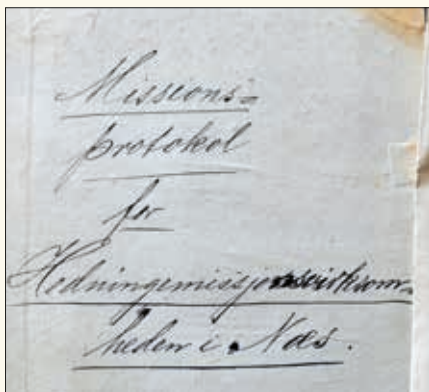 Missions=
protokol
for
Hedningemissjonsvirksom=
heden i Næs.